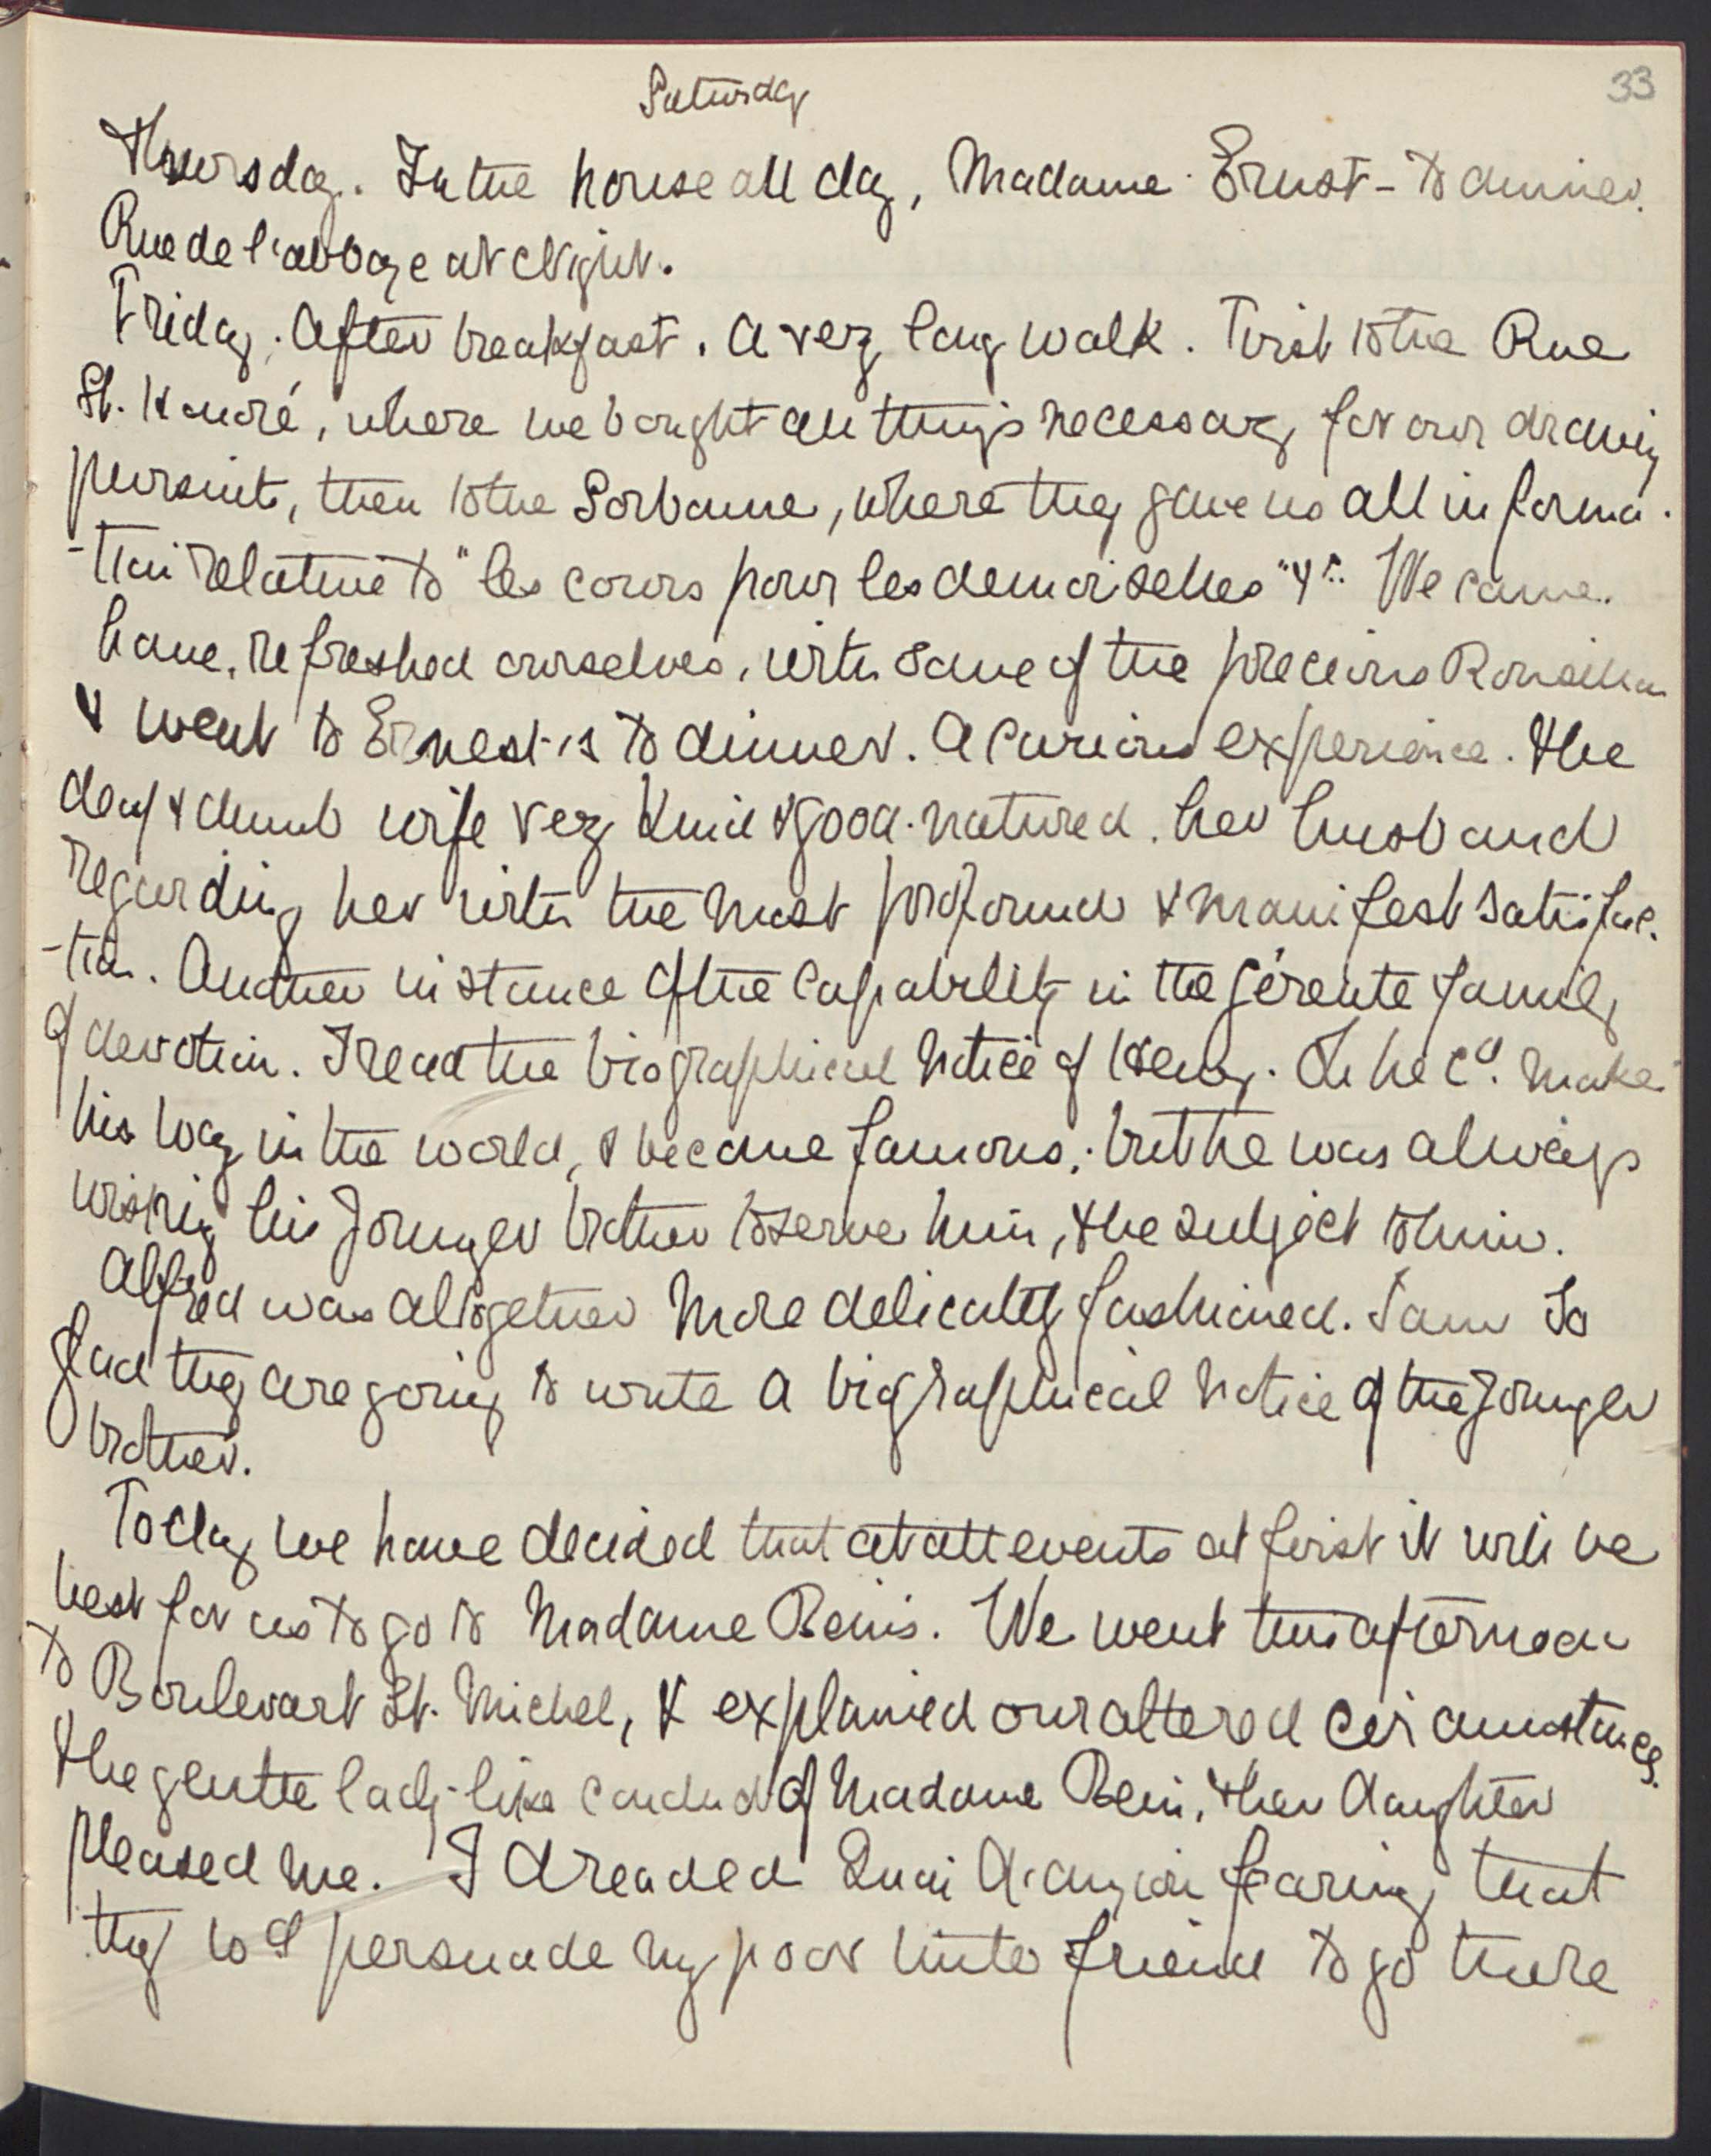 33
Saturday
Thursday. In the house all day, Madame Ernest - to dinner.
Rue de l'abbaye at Night.
Friday. After breakfast. A very long walk. First to the Rue
St. Honoré, where we bought all things necessary for our drawing
pursuits, then to the Sorbonne, where they gave us all informa-
-tion relative to "les cours pour les demoiselles" &c. We came
home, refreshed ourselves, with some of the precious Rousillon
& went to Ernest's to dinner. A curious experience. The
deaf & dumb wife very kind & good-natured. her husband
regarding her with the most profound & manifest satisfac-
-tion. Another instance of the capability in the gérente family
of devotion. I read the biographical notice of Henry. Oh he cd. make
his way in the world, & became famous; but he was always
wishing his younger brother to serve him, & be subject to him.
Alfred was altogether more delicately fashioned. I am so
glad they are going to write a biographical notice of the younger
brother.
Today we have decided that at all events at first it will be
best for us to go to Madame Benis. We went this afternoon
to Boulevart St. Michel, & explained our altered circumstances.
The gentle lady-like conduct of Madame Beni, & her daughter
pleased me. I dreaded Quai d'anjou fearing that
they wd persuade my poor little friend to go there